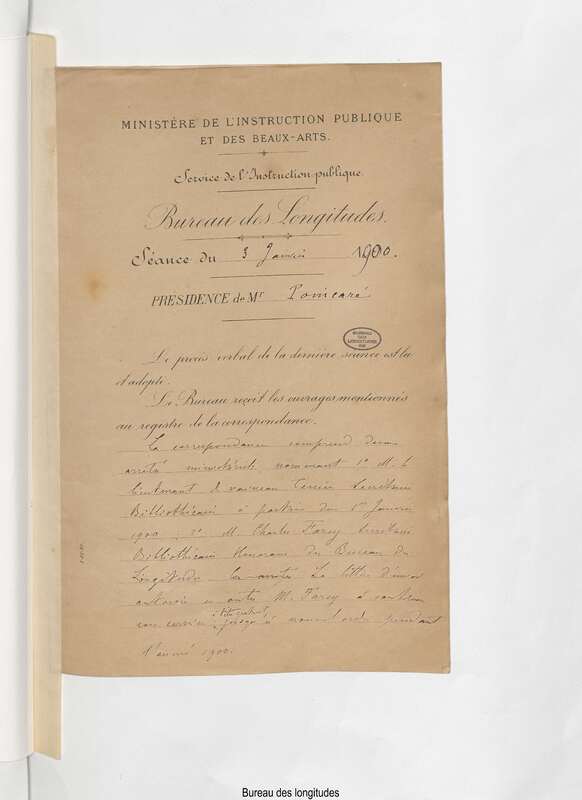 MINISTÈRE DE L'INSTRUCTION PUBLIQUE
ET DES BEAUX-ARTS.
Service de l'Instruction publique.
Bureau des Longitudes.
Séance du 3 Janvier 1900.
PRESIDENCE de Mr Poincaré
BUREAU
DES
LONGITUDES
Le procès verbal de la dernière séance est lu
et adopté.
Le Bureau reçoit les ouvrages mentionnés
au registre de la correspondance.
La correspondance comprend deux
arrêtés ministériels nommant 1° M. le
lieutenant de vaisseau Secrétaire
Bibliothécaire à partir du 1er Janvier
1900 ; 2° M. Charles Farcy Secrétaire
Bibliothécaire Honoraire du Bureau des
Longitudes. La lettre d'envoi
autorise en outre M. Farcy à
son service à titre
jusqu'à nouvel ordre pendant
l'année 1900.
Bureau des longitudes